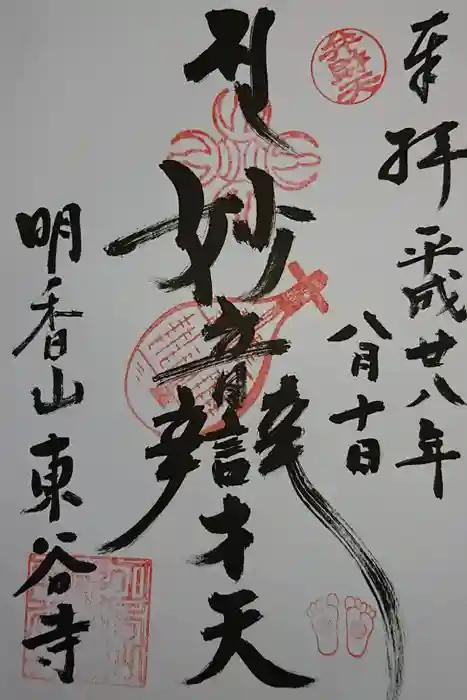 奉拝
平成廿八年
八月十日
妙音辯才天
明香山東谷寺